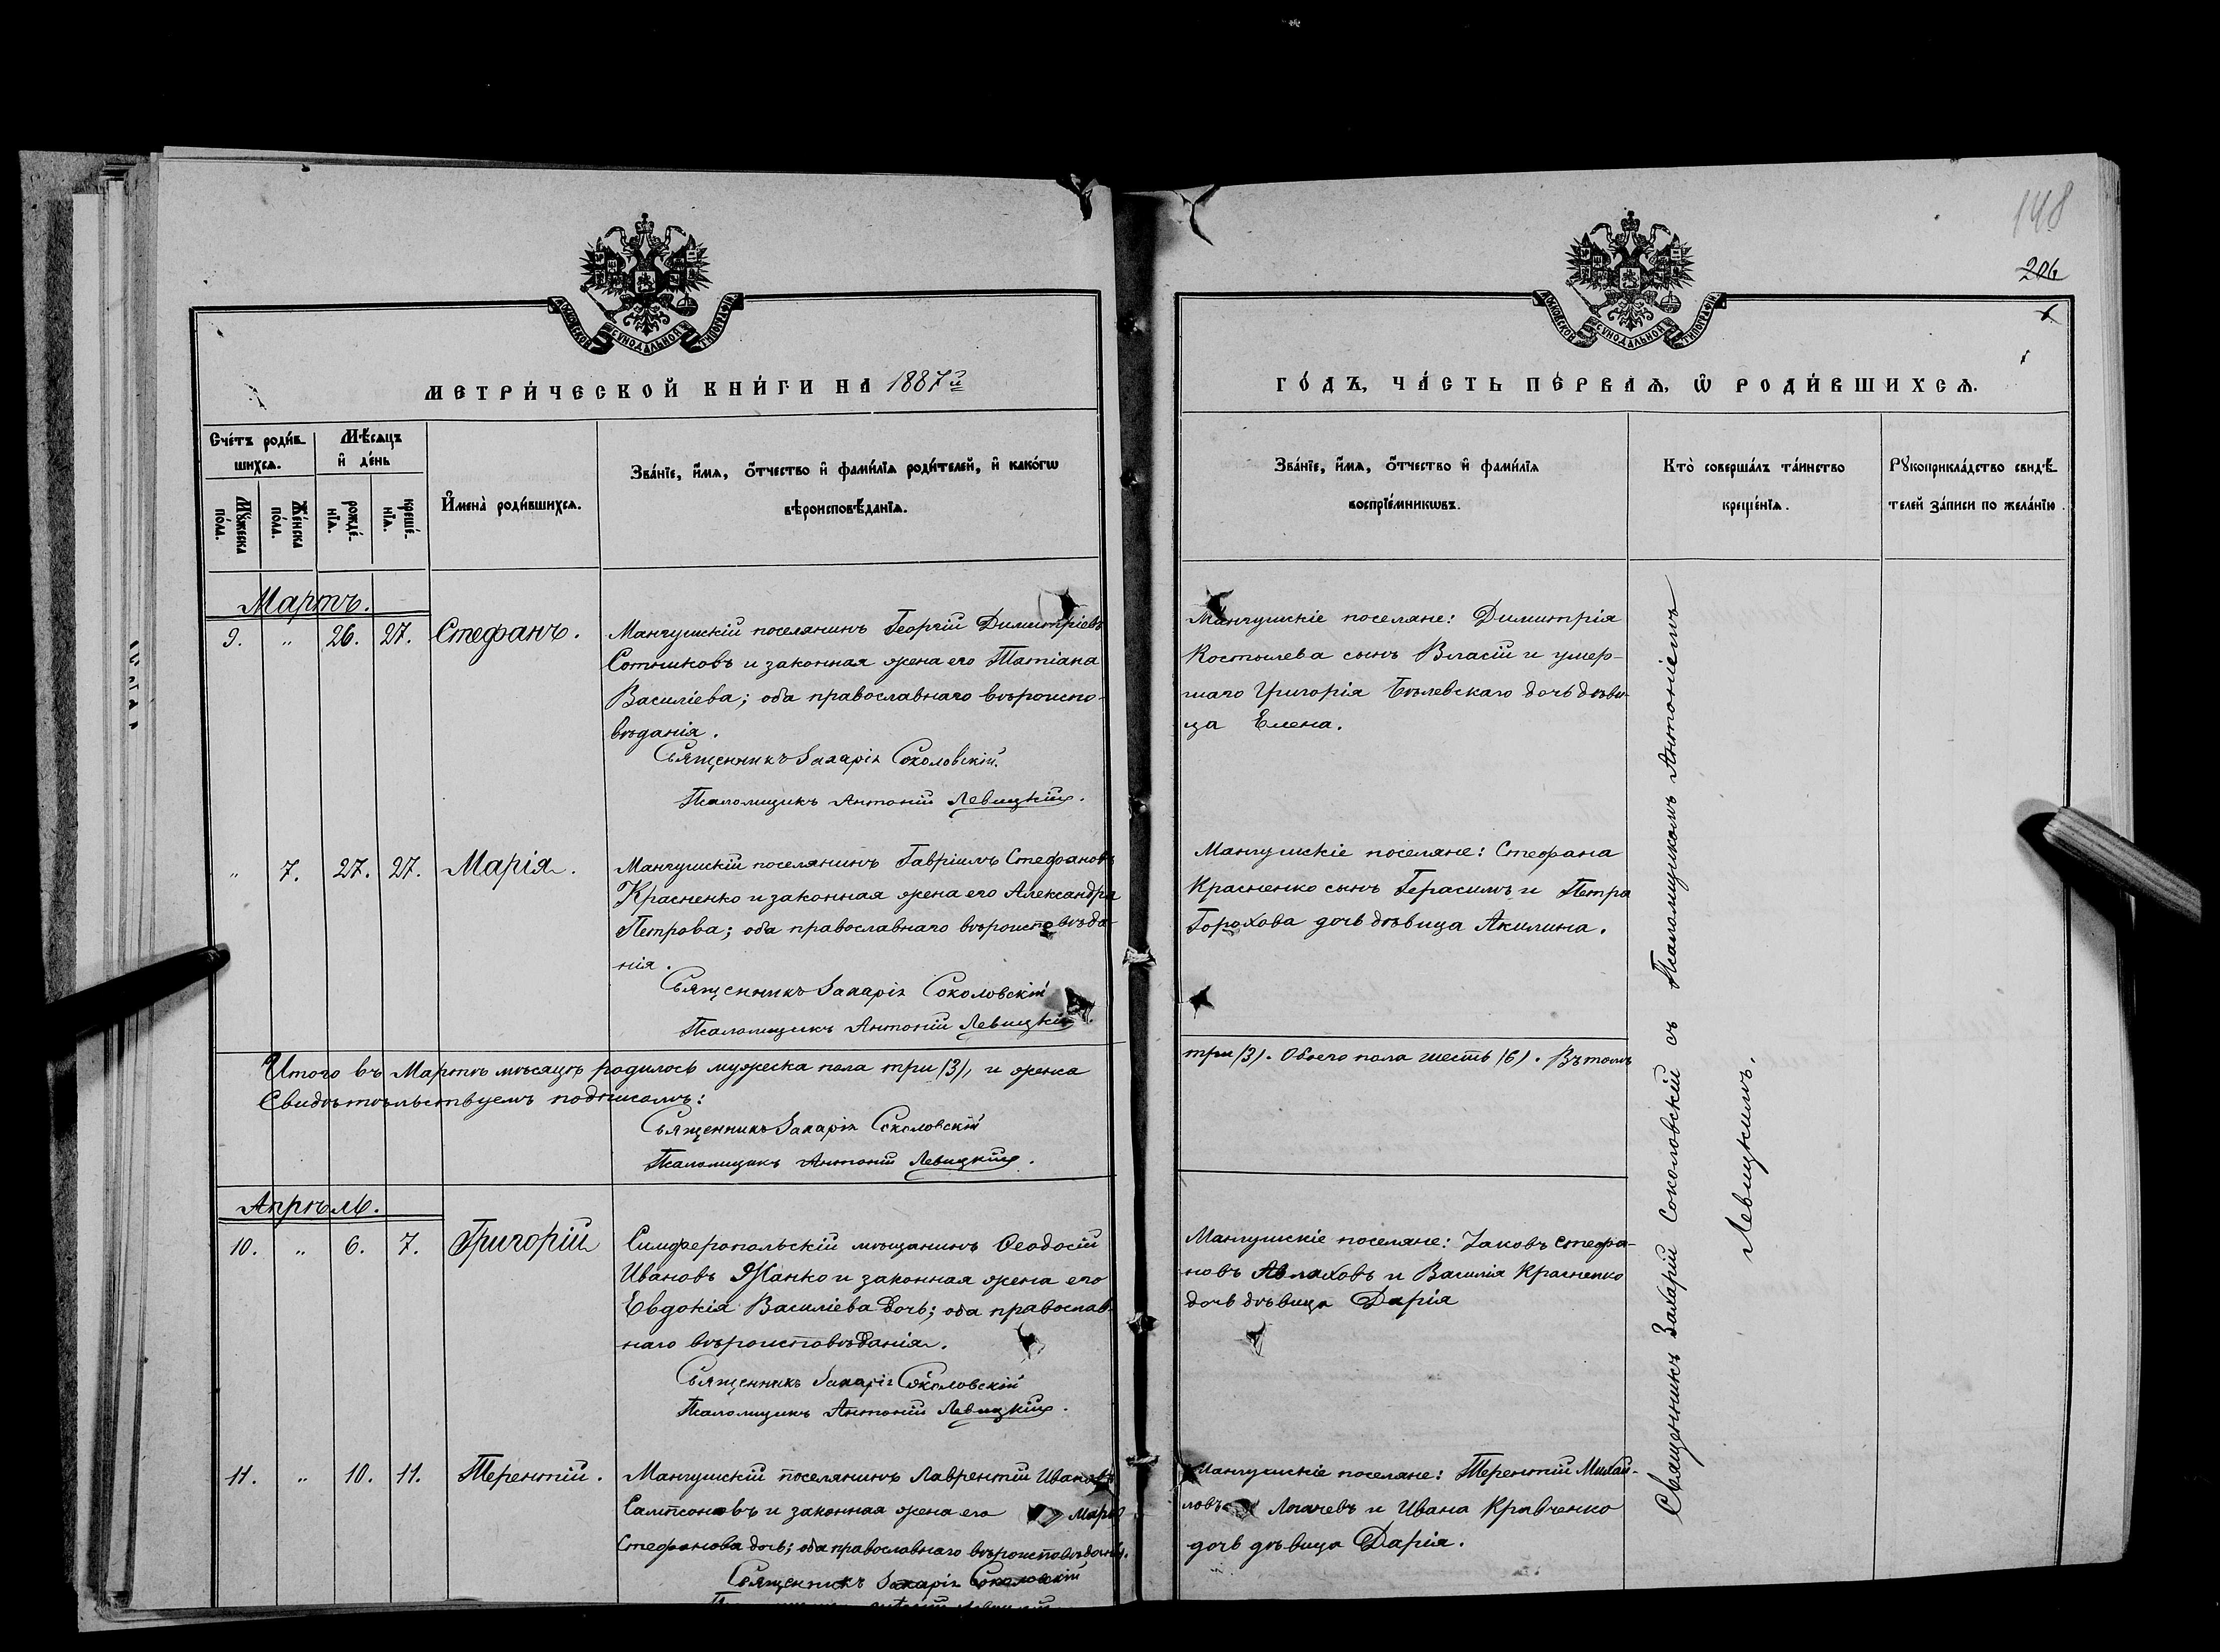 148
206
МОСКОВСКОЙ СѴНОДАЛЬНОЙ ТИПОГРАФІИ
МОСКОВСКОЙ СѴНОДАЛЬНОЙ ТИПОГРАФІИ
МЕТРИ́ЧЕСКОЙ КНИ́ГИ НА 1887й
ГО́ДЪ, ЧА́СТЬ ПЕ́РВАѦ, Ѽ РОДИ́ВШИХСѦ.
Сче́тъ роди́в-
шихсѧ.
Мѣ́сѧцъ
и҆ де́нь
Мꙋ́жеска
по́ла.
Же́нска
по́ла.
рожде́-
нїѧ.
креще́-
нїѧ.
И҆мена̀ роди́вшихсѧ.
Зва́нїе, и҆́мѧ, ѻ҆́тчество и҆ фами́лїѧ роди́телей, и҆ како́гѡ
вѣроисповѣ́данїѧ.
Зва́нїе, и҆́мѧ, ѻ҆́тчество и҆ фами́лїѧ
воспрїе́мникѡвъ.
Кто̀ соверша́лъ та́инство
креще́нїѧ.
Рꙋкоприкла́дство свидѣ́-
телей за́писи по жела́нїю.
Мартъ.
9. " 26. 27. Стефанъ.
Мангушскій поселянинъ Георгій Димитріевъ
Сотниковъ и законная жена его Татіана
Василіева; оба православнаго вѣроиспо-
вѣданія.
Священникъ Захарія Соколовскій.
Псаломщикъ Антоній Левицкій.
Мангушскіе поселяне: Димитрія
Костылева сынъ Власій и умер-
шаго Григорія Бѣлевскаго дочь дѣви-
ца Елена.
" 7. 27. 27. Марія.
Мангушскій поселянинъ Гавріилъ Стефановъ
Красненко и законная жена его Александра
Петрова; оба православнаго вѣроисповѣда-
нія.
Священникъ Захарія Соколовскій
Псаломщикъ Антоній Левицкій.
Мангушскіе поселяне: Стефана
Красненко сынъ Герасимъ и Петра
Горохова дочь дѣвица Акилина.
Итого въ Мартѣ мѣсяцѣ родилось мужеска пола три (3), и женска
три (3). Обоего пола шесть (6). Въ томъ
Свидѣтельствуемъ подписомъ:
Священникъ Захарія Соколовскій
Псаломщикъ Антоній Левицкій.
Апрѣль.
10. " 6. 7. Григорій
Симферопольскій мѣщанинъ Ѳеодосій
Ивановъ Жанко и законная жена его
Евдокія Василіева дочь; оба православ-
наго вѣроисповѣданія.
Священникъ Захарія Соколовскій
Псаломщикъ Антоній Левицкій.
Мангушскіе поселяне: Іаковъ Стефа-
новъ Авлаховъ и Василія Красненко
дочь дѣвица Дарія
11. " 10. 11. Терентій.
Мангушскій поселянинъ Лаврентій Ивановъ
Сампсоновъ и законная жена его Марія
Стефанова дочь; оба православнаго вѣроисповѣданія.
Священникъ Захарія Соколовскій
Мангушскіе поселяне: Терентій Михай-
ловъ Логачевъ и Ивана Кравченко
дочь дѣвица Дарія.
Священникъ Захарій Соколовскій съ Псаломщикомъ Антоніемъ
Левицкимъ.